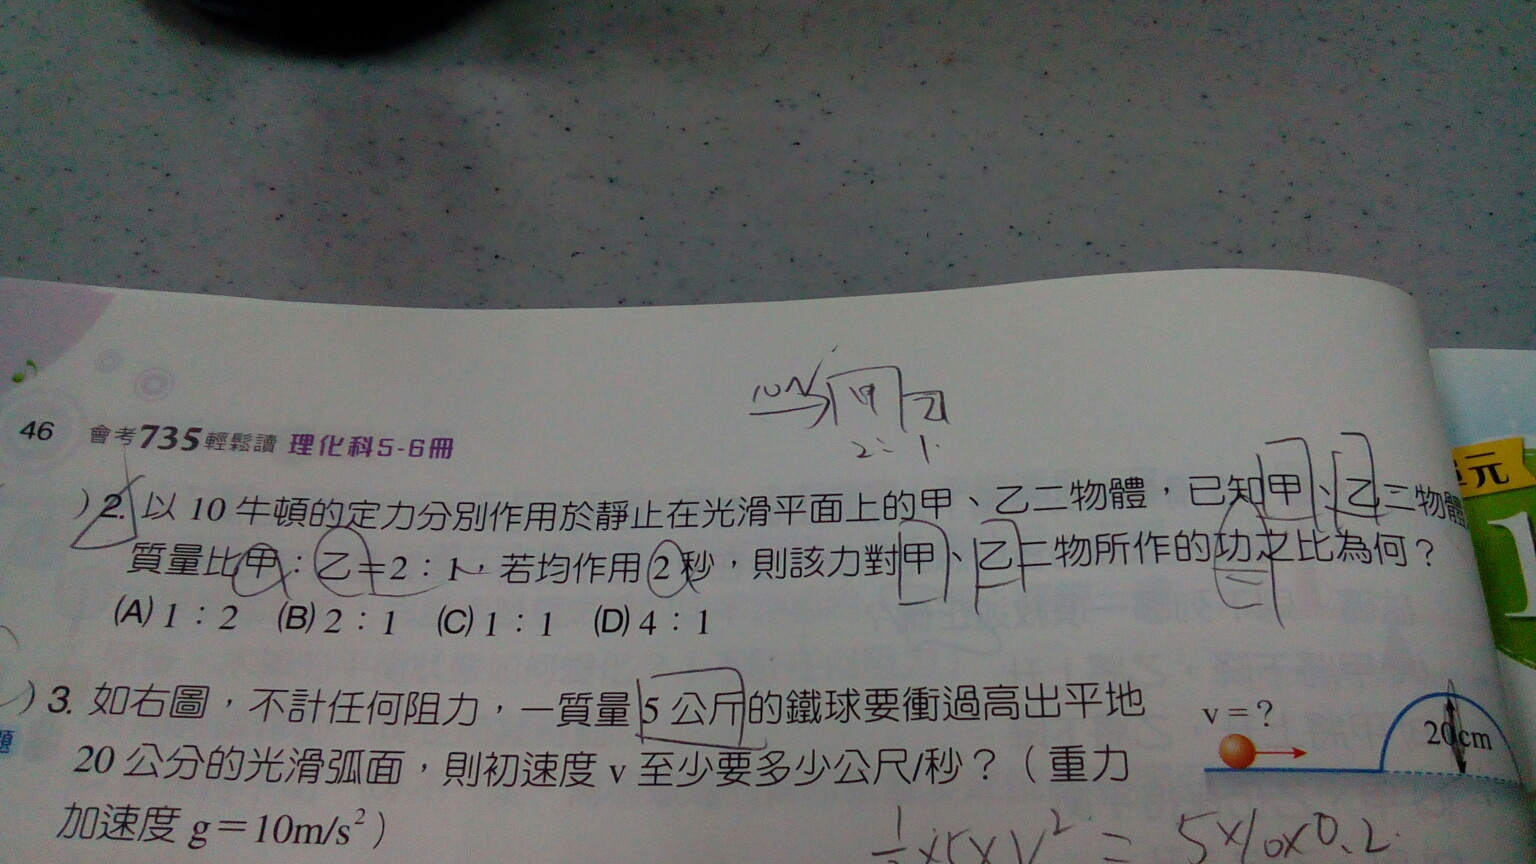 10N 甲 乙
2:1
46 會考735輕鬆讀 理化科5-6冊
單元
1
)2. 以 10 牛頓的定力分別作用於靜止在光滑平面上的甲、乙二物體，已知甲、乙二物體
質量比甲：乙＝2：1，若均作用 2 秒，則該力對甲、乙二物所作的功之比為何？
(A) 1：2 (B) 2：1 (C) 1：1 (D) 4：1
)3. 如右圖，不計任何阻力，一質量 5 公斤的鐵球要衝過高出平地
20 公分的光滑弧面，則初速度 v 至少要多少公尺/秒？（重力
加速度 g＝10m/s²）
v＝?
20cm
題
½×5×V²＝5×10×0.2